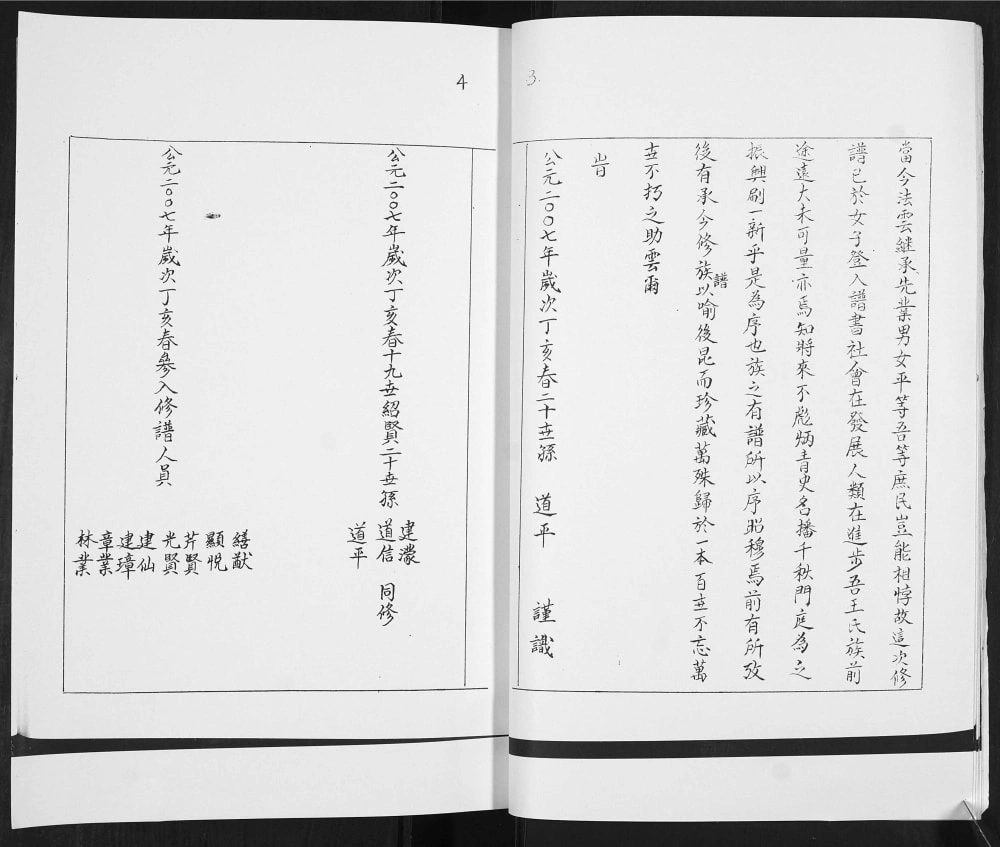 3.
當今法雲継承先業男女平等吾等庶民豈能相悖故這次修
譜已於女子登入譜書社會在發展人類在進步吾王氏族前
途遠大未可量亦焉知將來不彪炳青史名播千秋門庭為之
振興刷一新乎是為序也族之有譜所以序昭穆焉前有所攷
後有承今修族譜以喻後昆而珍藏萬殊歸於一本百世不忘萬
世不朽之助雲爾
旹
公元二00七年歲次丁亥春二十世孫 道平 謹識
4
公元二00七年歲次丁亥春十九世紹賢二十世孫 建瀛 道信 道平 同修
公元二00七年歲次丁亥春參入修譜人員
繕猷
顯悅
芹賢
光賢
建仙
建璋
章業
林業